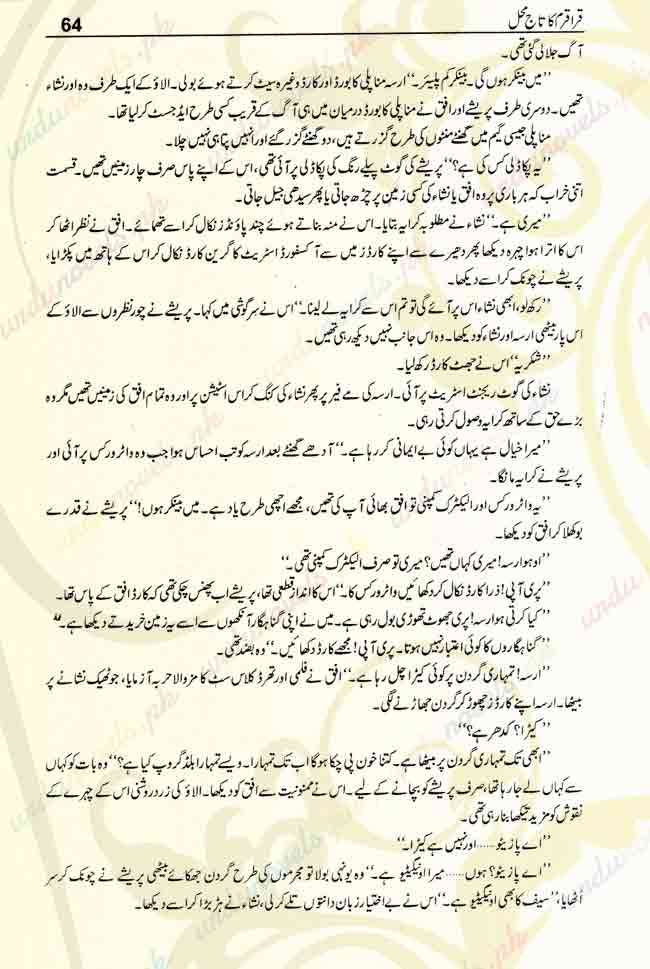 قراقرم کا تاج محل
64
آگ جلالی گئی تھی۔
”میں بینکر ہوں گی۔ بینکر کم پلیئر۔“ ارسہ مناپلی کا بورڈ اور کارڈ وغیرہ سیٹ کرتے ہوئے بولی۔ الاؤ کے ایک طرف وہ اور نشاء
تھیں۔ دوسری طرف پریشے اور افق نے مناپلی کا بورڈ درمیان میں ہی آگ کے قریب کسی طرح ایڈجسٹ کر لیا تھا۔
مناپلی جیسی گیم میں گھنٹے منٹوں کی طرح گزرتے ہیں، دو گھنٹے گزر گئے اور انہیں پتا ہی نہیں چلا۔
”یہ پکاڈلی کس کی ہے؟“ پریشے کی گوٹ پیلے رنگ کی پکاڈلی پر آئی تھی، اس کے اپنے پاس صرف چار زمینیں تھیں۔ قسمت
اتنی خراب کہ ہر باری پر وہ افق یا نشاء کی کسی زمین پر چڑھ جاتی یا پھر سیدھی جیل جاتی۔
”میری ہے۔“ نشاء نے مطلوبہ کرایہ بتایا۔ اس نے منہ بناتے ہوئے چند پاؤنڈز نکال کر اسے تھمائے۔ افق نے نظر اٹھا کر
اس کا اترا ہوا چہرہ دیکھا پھر دھیرے سے اپنے کارڈز میں سے آکسفورڈ اسٹریٹ کا گرین کارڈ نکال کر اس کے ہاتھ میں پکڑایا،
پریشے نے چونک کر اسے دیکھا۔
”رکھ لو، ابھی نشاء اس پر آئے گی تو تم اس سے کرایہ لے لینا۔“ اس نے سرگوشی میں کہا۔ پریشے نے چور نظروں سے الاؤ کے
اس پار بیٹھی ارسہ اور نشاء کو دیکھا۔ وہ اس جانب نہیں دیکھ رہی تھیں۔
”شکریہ“ اس نے جھٹ کارڈ رکھ لیا۔
نشاء کی گوٹ ریجنٹ اسٹریٹ پر آئی۔ ارسہ کی مے فیر پر پھر نشاء کی کنگ کراس اسٹیشن پر اور وہ تمام افق کی زمینیں تھیں مگر وہ
بڑے حق کے ساتھ کرایہ وصول کرتی رہی۔
”میرا خیال ہے یہاں کوئی بے ایمانی کر رہا ہے۔“ آدھے گھنٹے بعد ارسہ کو تب احساس ہوا جب وہ واٹر ورکس پر آئی اور
پریشے نے کرایہ مانگا۔
”یہ واٹر ورکس اور الیکٹرک کمپنی تو افق بھائی آپ کی تھیں، مجھے اچھی طرح یاد ہے۔ میں بینکر ہوں!“ پریشے نے قدرے
بوکھلا کر افق کو دیکھا۔
”اوہو ارسہ! میری کہاں تھیں؟ میری تو صرف الیکٹرک کمپنی تھی۔“
”پری آپی! ذرا کارڈ نکال کر دکھائیں واٹر ورکس کا۔“ اس کا انداز قطعی تھا، پریشے اب پھنس چکی تھی کہ کارڈ افق کے پاس تھا۔
”کیا کرتی ہو ارسہ! پری جھوٹ تھوڑی بول رہی ہے۔ میں نے اپنی گناہگار آنکھوں سے اسے یہ زمین خریدتے دیکھا ہے۔“
”گناہگاروں کا کوئی اعتبار نہیں ہوتا۔ پری آپی! مجھے کارڈ دکھائیں۔“ وہ بضد تھی۔
”ارسہ! تمہاری گردن پر کوئی کیڑا چل رہا ہے۔“ افق نے فلمی اور تھرڈ کلاس سٹ کا مزو والا حربہ آزمایا، جو ٹھیک نشانے پر
بیٹھا۔ ارسہ اپنے کارڈز چھوڑ کر گردن جھاڑنے لگی۔
”کیڑا؟ کدھر ہے؟“
”ابھی تک تمہاری گردن پر بیٹھا ہے۔ کتنا خون پی چکا ہوگا اب تک تمہارا۔ ویسے تمہارا بلڈ گروپ کیا ہے؟“ وہ بات کو کہاں
سے کہاں لے جا رہا تھا، صرف پریشے کو بچانے کے لیے۔ اس نے ممنونیت سے افق کو دیکھا۔ الاؤ کی زرد روشنی اس کے چہرے کے
نقوش کو مزید تیکھا بنا رہی تھی۔
”اے پازیٹو...... اور نہیں ہے کیڑا۔“
”اے پازیٹو؟ ہوں...... میرا او نیگیٹیو ہے۔“ وہ یونہی بولا تو مجرموں کی طرح گردن جھکائے بیٹھی پریشے نے چونک کر سر
اٹھایا، ”سیف کا بھی او نیگیٹیو ہے۔“ اس نے بے اختیار زبان دانتوں تلے کر لی، نشاء نے ہڑبڑا کر اسے دیکھا۔